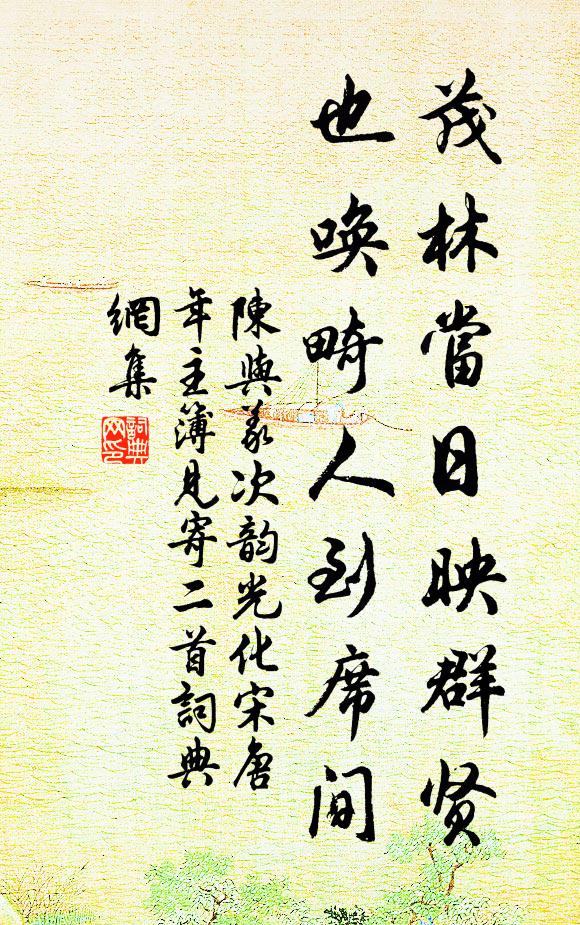 茂林當日映群贤
也喚畸人到席间
陳與義次韵光化宋唐
年主簿見寄二首詞典
網集
詞典
网印